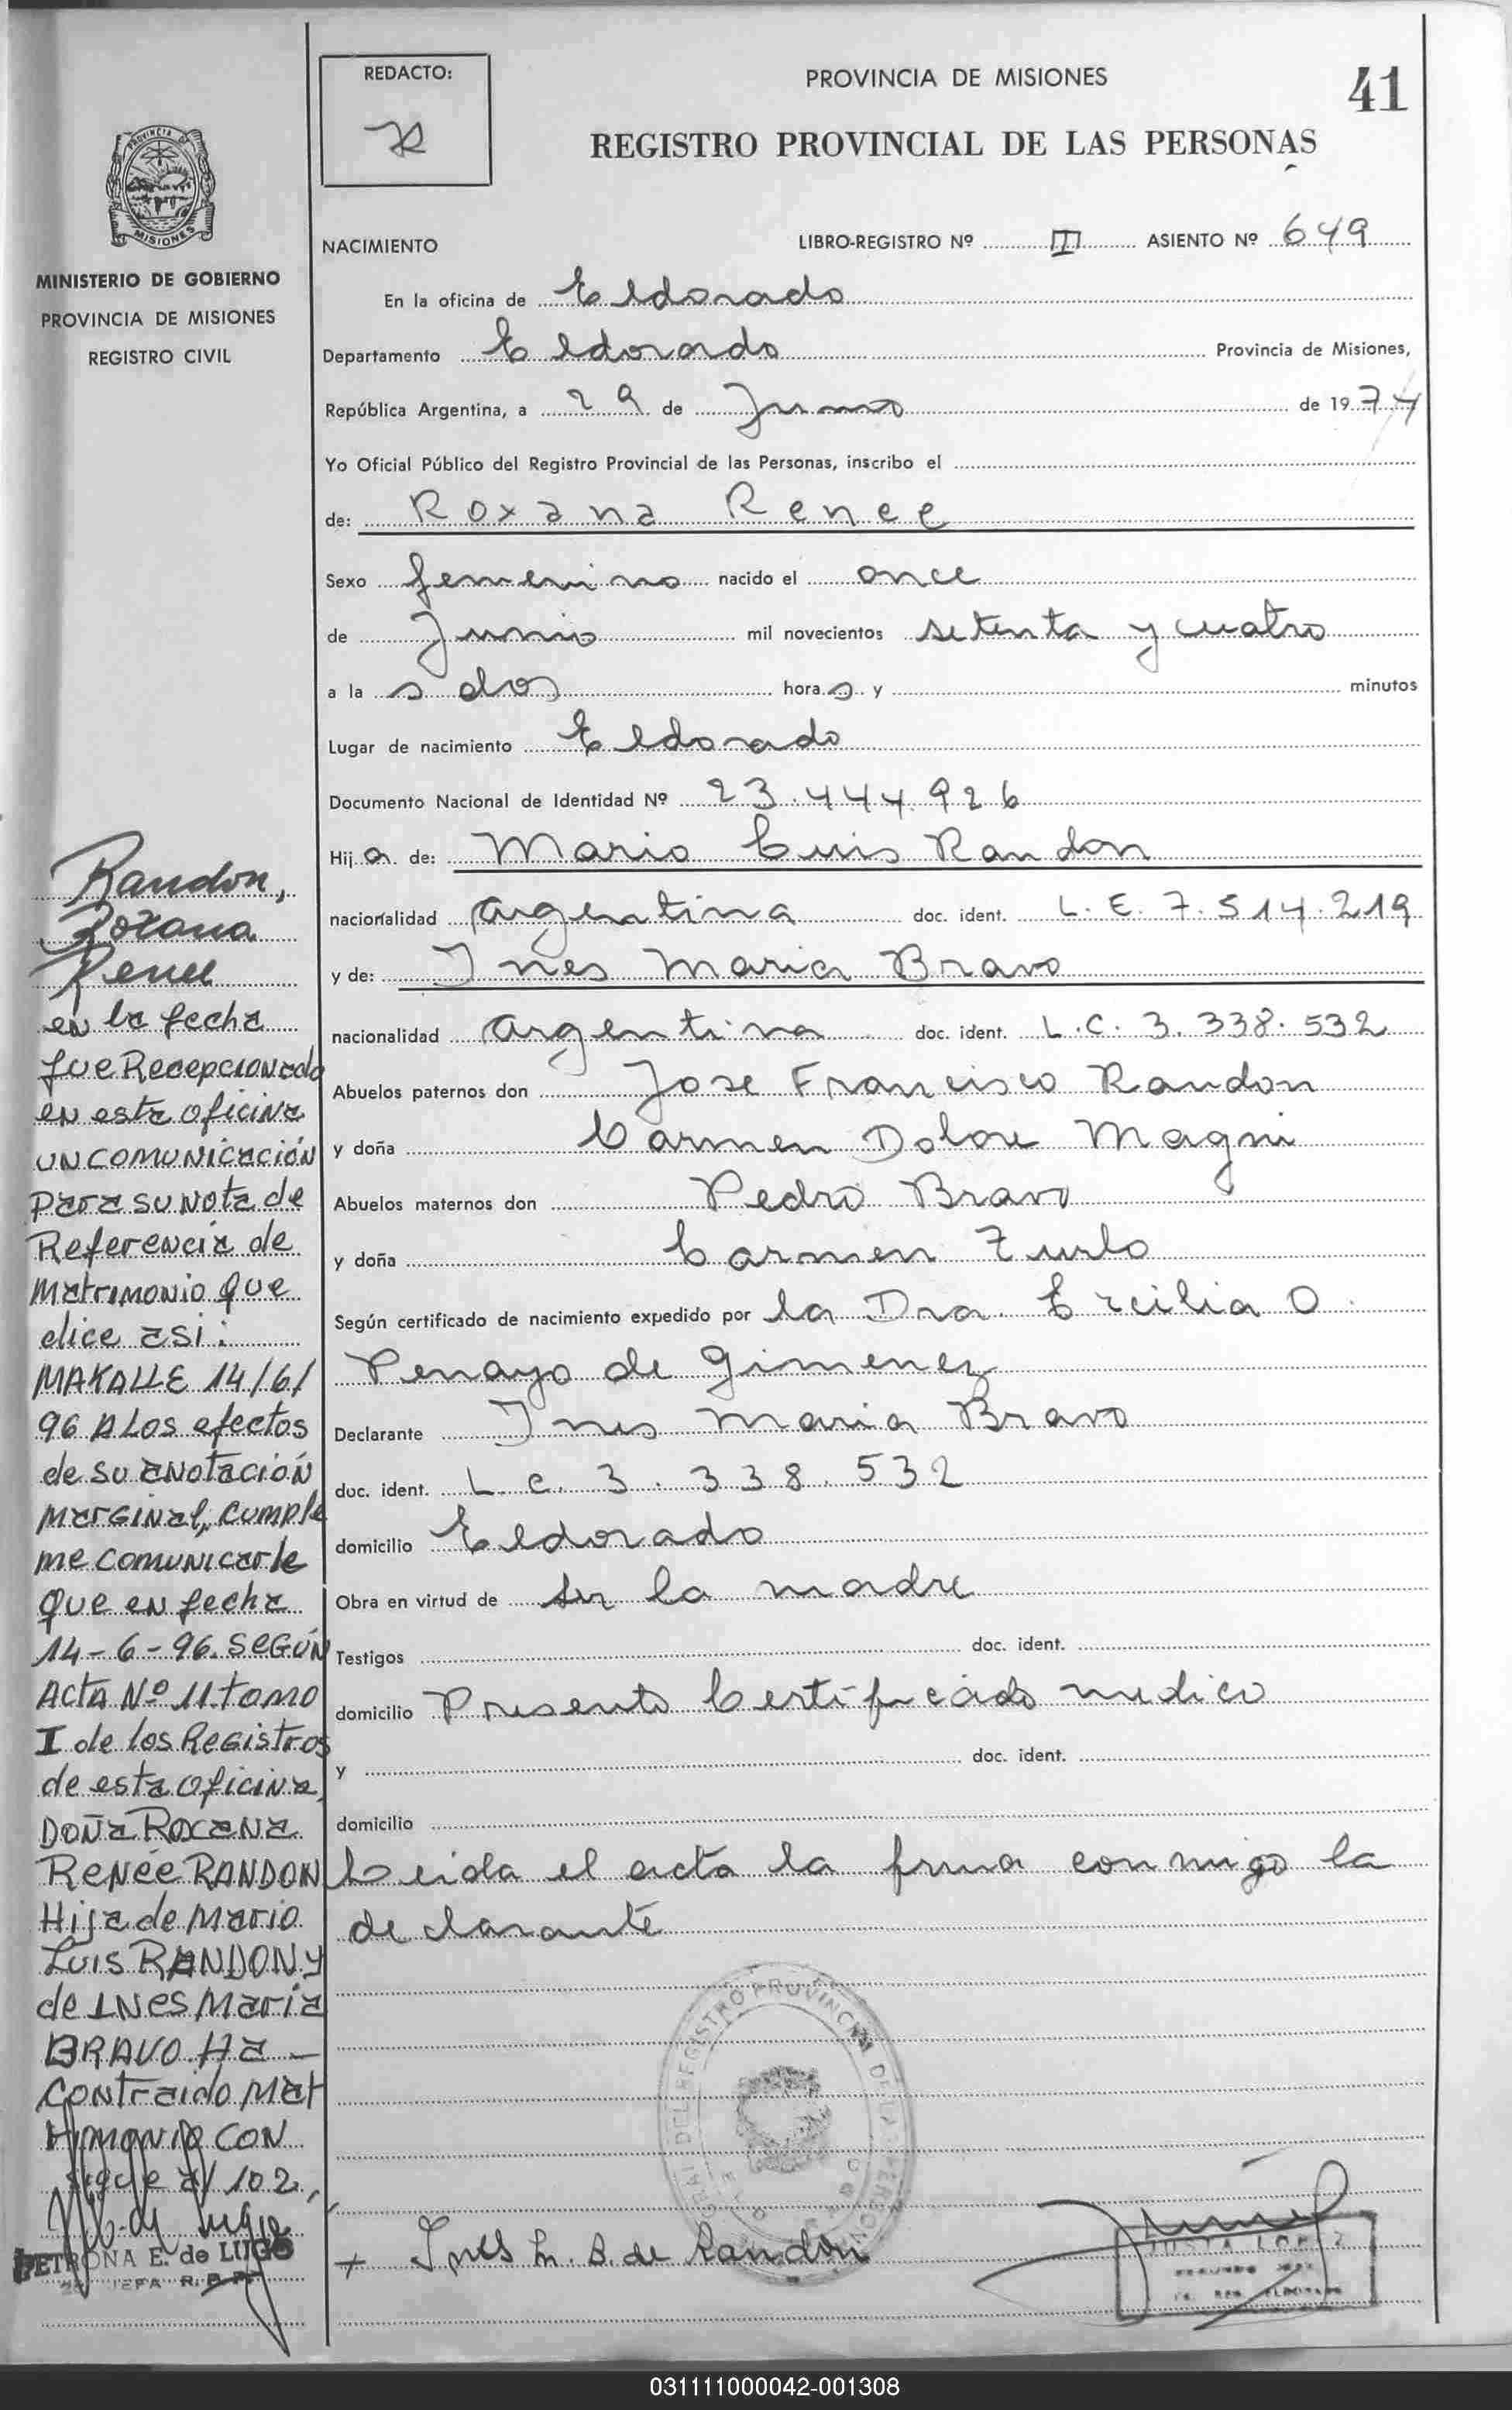 REDACTO:
PROVINCIA DE MISIONES
41
REGISTRO PROVINCIAL DE LAS PERSONAS
MINISTERIO DE GOBIERNO
PROVINCIA DE MISIONES
REGISTRO CIVIL
NACIMIENTO LIBRO-REGISTRO Nº III ASIENTO Nº 649
En la oficina de Eldorado
Departamento Eldorado Provincia de Misiones,
República Argentina, a 29 de Junio de 1974
Yo Oficial Público del Registro Provincial de las Personas, inscribo el
de: Roxana Renee
Sexo femenino nacido el once
de Junio mil novecientos setenta y cuatro
a la s dos hora s y minutos
Lugar de nacimiento Eldorado
Documento Nacional de Identidad Nº 23.444.926
Hij a de: Mario Luis Randon
nacionalidad Argentina doc. ident. L. E. 7.514.219
y de: Ines Maria Bravo
nacionalidad Argentina doc. ident. L.C. 3.338.532
Abuelos paternos don Jose Francisco Randon
y doña Carmen Dolore Magni
Abuelos maternos don Pedro Bravo
y doña Carmen Zurlo
Según certificado de nacimiento expedido por la Dra. Ercilia O.
Penayo de Gimenez
Declarante Ines Maria Bravo
doc. ident. L. C. 3.338.532
domicilio Eldorado
Obra en virtud de ser la madre
Testigos doc. ident.
domicilio Presento Certificado medico
y doc. ident.
domicilio
Leida el acta la firma conmigo la
declarante
Ines M. B. de Randon
JUSTA LOPEZ
Randon,
Roxana
Renee
en la fecha
fue Recepcionado
en esta oficina
un comunicación
para su nota de
Referencia de
Matrimonio que
dice asi:
MAKALLE 14/6/
96 A Los efectos
de su anotación
marginal, cumple
me comunicarle
que en fecha
14-6-96. según
Acta Nº 11 tomo
I de los Registros
de esta oficina,
Doña Roxana
Renée RANDON
Hija de Mario
Luis RANDON y
de Ines Maria
BRAVO Ha -
contraido mat
rimonio con
sigue al 102,
PETRONA E. de LUGO
JEFA R.P.P.
031111000042-001308